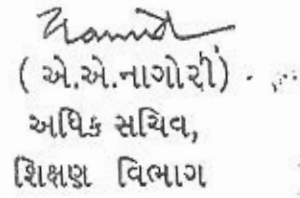 (એ.એ.નાગોરી)
અધિક સચિવ,
શિક્ષણ વિભાગ